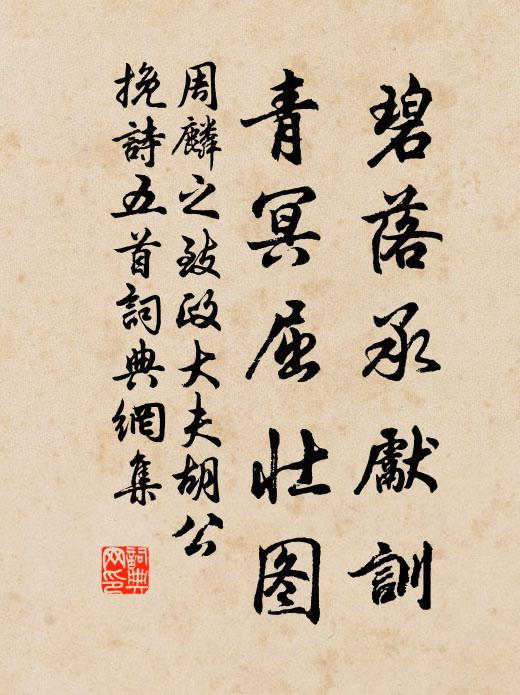 碧落承獻訓
青冥屈壮图
周麟之致政大夫胡公
挽詩五首詞典網集
詞典网印